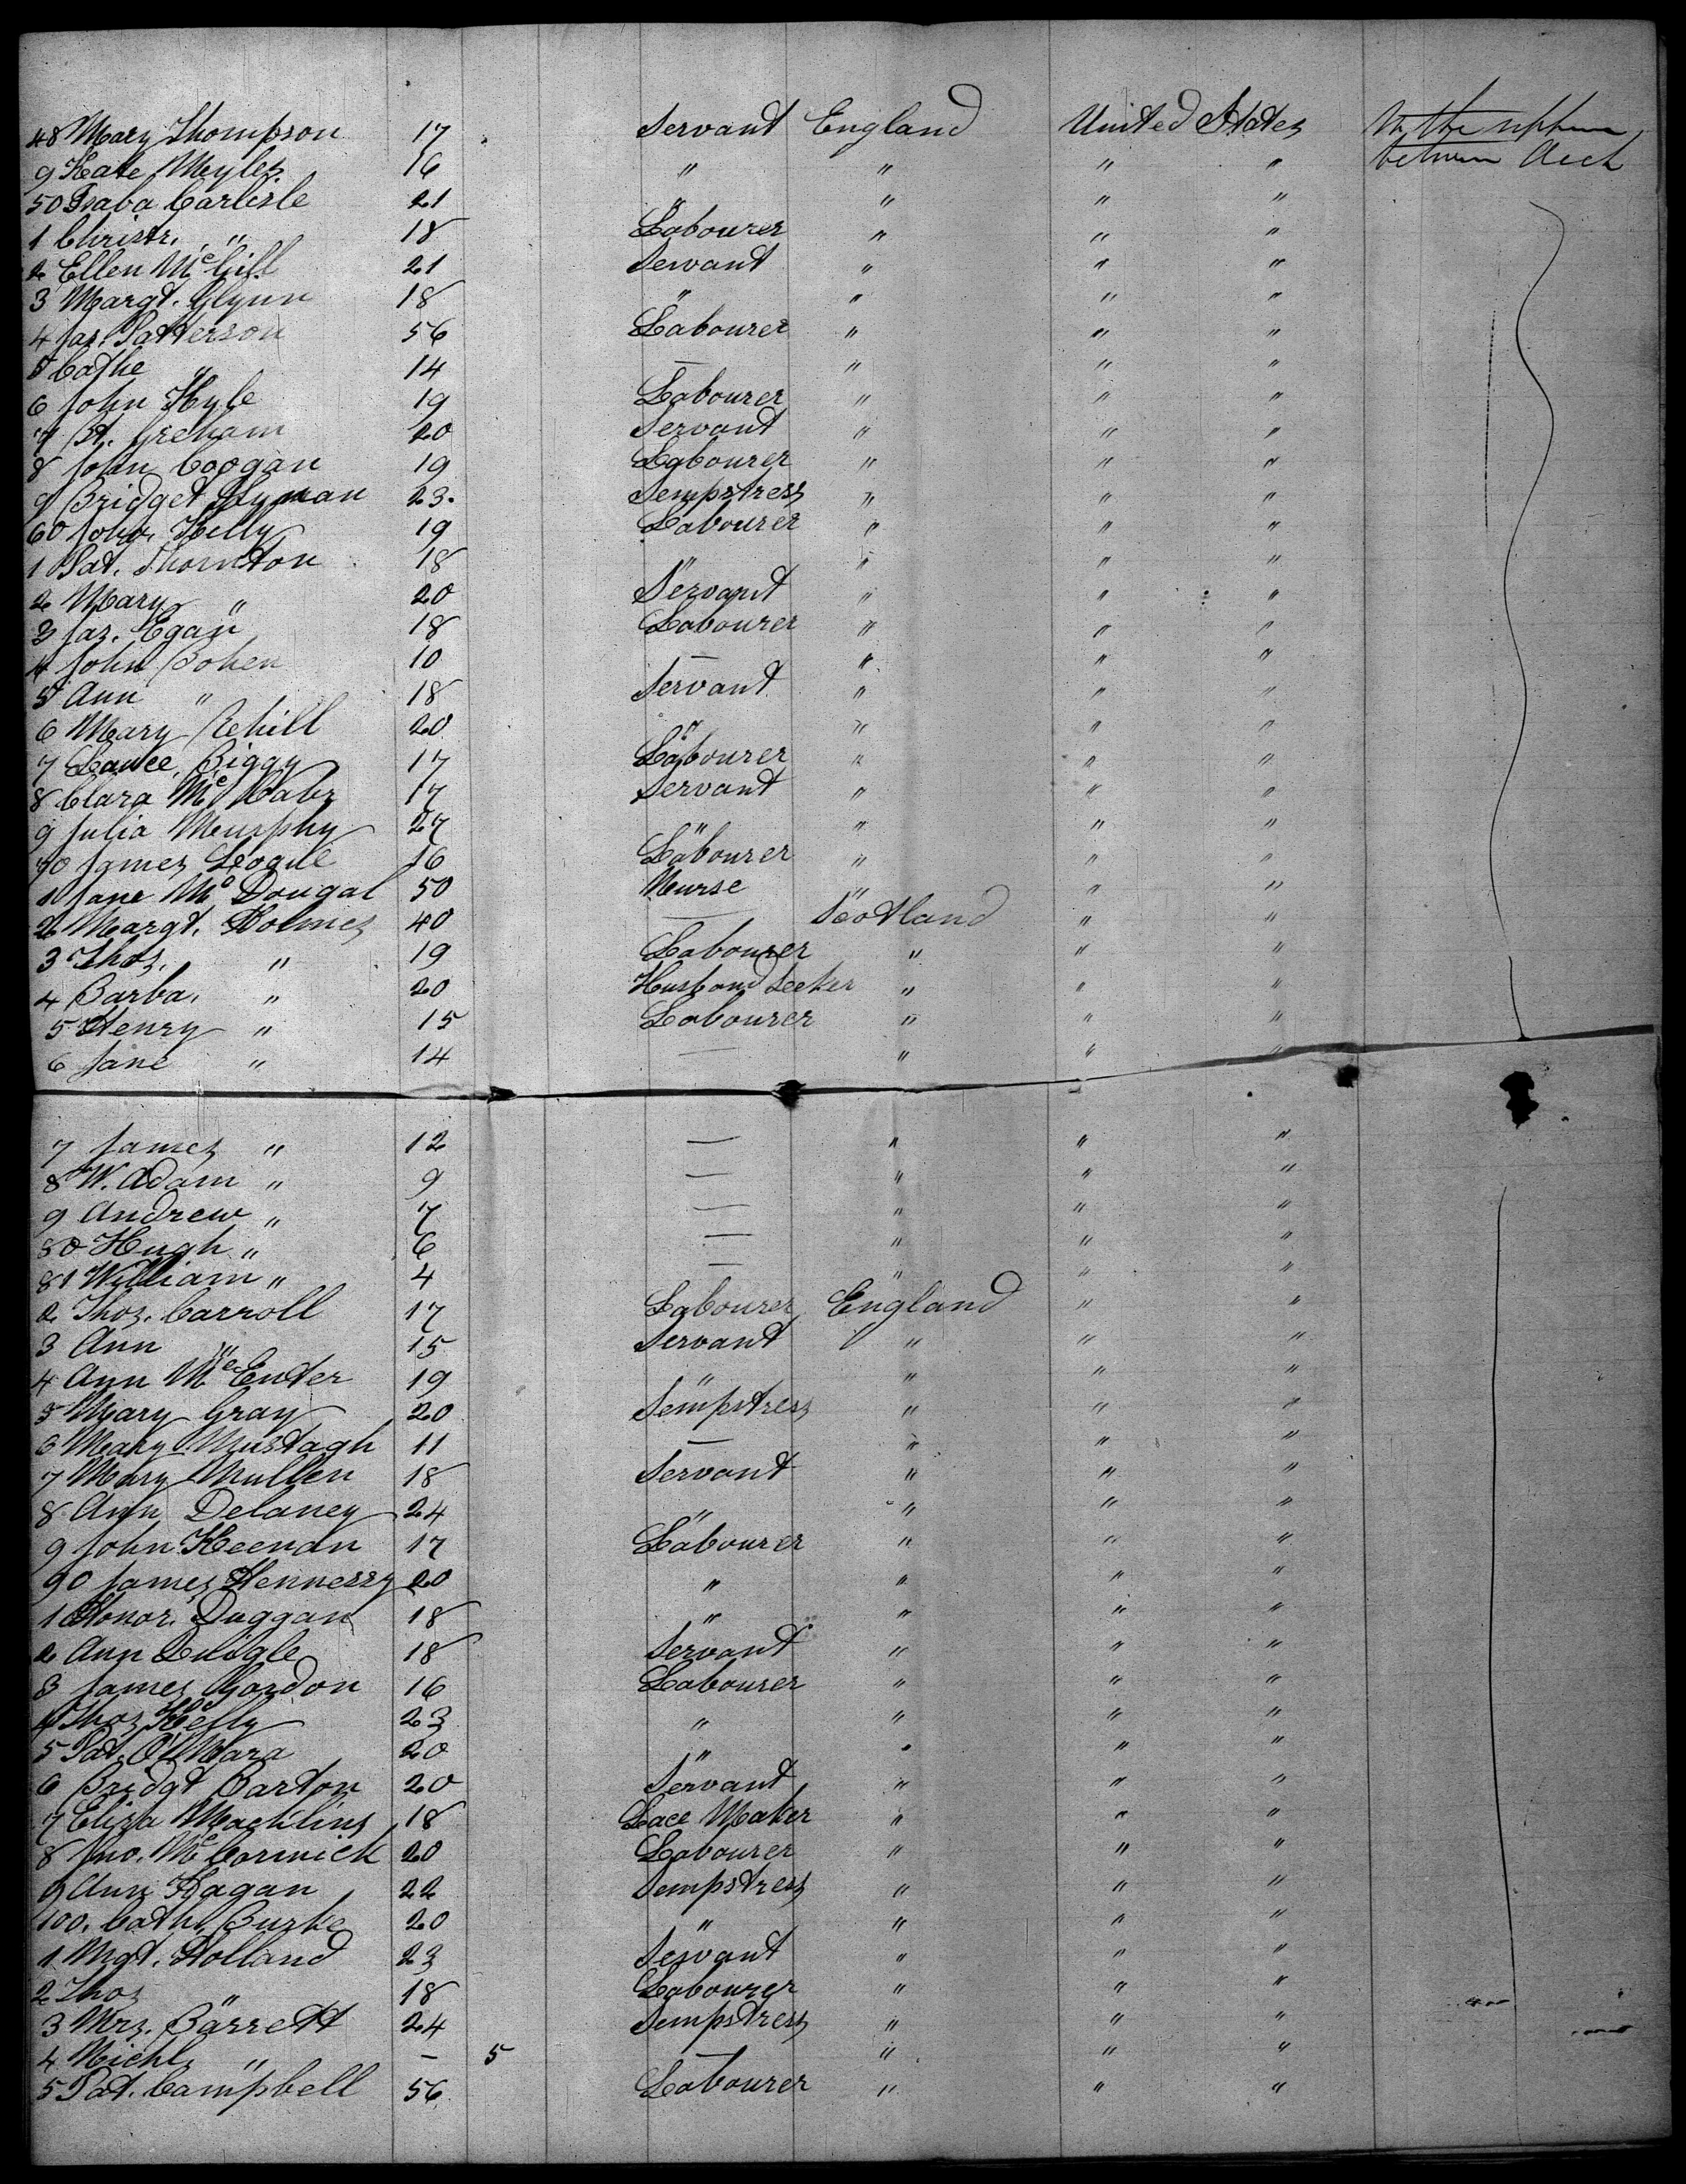 48 Mary Thompson 17 Servant England United States In the upper
9 Kate Myles 16 " " " " between deck
50 Isaba Carlisle 21 " " " "
1 Christr. " 18 Labourer " " "
2 Ellen McGill 21 Servant " " "
3 Margt. Glynn 18 " " " "
4 Jas. Patterson 56 Labourer " " "
5 Cathe " 14 — " " "
6 John Kyle 19 Labourer " " "
7 Bt. Greham 20 Servant " " "
8 John Coogan 19 Labourer " " "
9 Bridget Hyman 23. Sempstress " " "
60 John Kelly 19 Labourer " " "
1 Pat. Thornton 18 " " " "
2 Mary " 20 Servant " " "
3 Jas. Egan 18 Labourer " " "
4 John Bohen 10 — " " "
5 Ann " 18 Servant " " "
6 Mary Rehill 20 " " " "
7 Lawce. Biggy 17 Labourer " " "
8 Clara McCabe 17 Servant " " "
9 Julia Murphy 27 " " " "
70 James Logue 16 Labourer " " "
1 Jane McDougal 50 Nurse " " "
2 Margt. Holmes 40 — Scotland " "
3 Thos. " 19 Labourer " " "
4 Barba. " 20 Husband Seeker " " "
5 Henry " 15 Labourer " " "
6 Jane " 14 — " " "
7 James " 12 — " " "
8 W. Adam " 9 — " " "
9 Andrew " 7 — " " "
80 Hugh " 6 — " " "
81 William " 4 — " " "
2 Thos. Carroll 17 Labourer England " "
3 Ann " 15 Servant " " "
4 Ann McEnter 19 " " " "
5 Mary Gray 20 Sempstress " " "
6 Mary Murtagh 11 — " " "
7 Mary Mullen 18 Servant " " "
8 Ann Delaney 24 " " " "
9 John Keenan 17 Labourer " " "
90 James Hennessy 20 " " " "
1 Honor. Duggan 18 " " " "
2 Ann 18 Servant " " "
3 James Gordon 16 Labourer " " "
4 Thos Kelly 23 " " " "
5 Pat. O'Mara 20 " " " "
6 Bridgt Barton 20 Servant " " "
7 Eliza Macklins 18 Lace Maker " " "
8 Jno. McCormick 20 Labourer " " "
9 Ann Hagan 22 Sempstress " " "
100. Cath. Burke 20 " " " "
1 Mgt. Holland 23 Servant " " "
2 Thos " 18 Labourer " " "
3 Mrs. Barrett 24 Sempstress " " "
4 Michl. " — 5 — " " "
5 Pat. Campbell 56 Labourer " " "